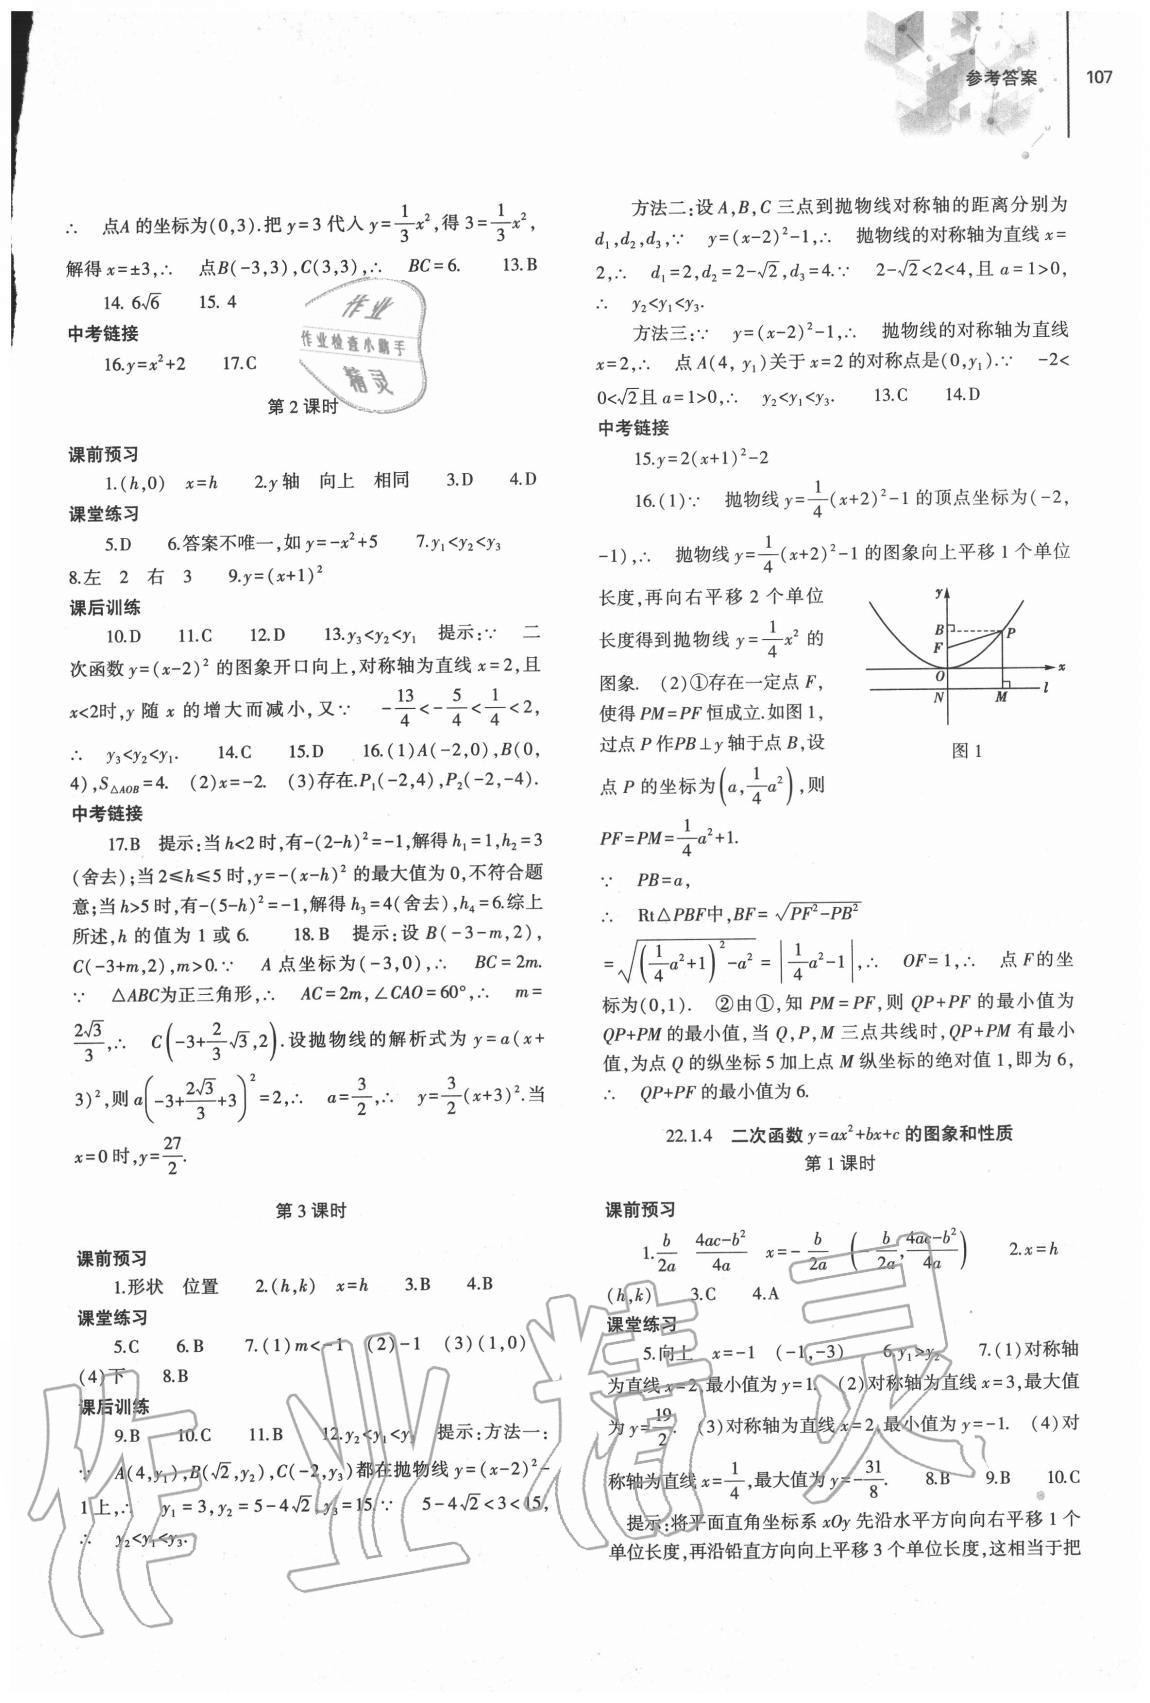 参考答案 107
∴ 点A 的坐标为(0,3).把 y=3 代入 y=1/3x²,得 3=1/3x²,
解得 x=±3,∴ 点B(-3,3),C(3,3),∴ BC=6. 13.B
14. 6√6 15. 4
中考链接
16.y=x²+2 17.C
作业
作业检查小助手
精灵
第 2 课时
课前预习
1.(h,0) x=h 2.y 轴 向上 相同 3.D 4.D
课堂练习
5.D 6.答案不唯一,如 y=-x²+5 7.y₁<y₂<y₃
8.左 2 右 3 9.y=(x+1)²
课后训练
10.D 11.C 12.D 13.y₃<y₂<y₁ 提示:∵ 二
次函数 y=(x-2)² 的图象开口向上,对称轴为直线 x=2,且
x<2时,y 随 x 的增大而减小,又∵ -13/4<-5/4<1/4<2,
∴ y₃<y₂<y₁. 14.C 15.D 16.(1)A(-2,0),B(0,
4),S△AOB=4. (2)x=-2. (3)存在.P₁(-2,4),P₂(-2,-4).
中考链接
17.B 提示:当 h<2 时,有-(2-h)²=-1,解得 h₁=1,h₂=3
(舍去);当 2≤h≤5 时,y=-(x-h)² 的最大值为 0,不符合题
意;当 h>5 时,有-(5-h)²=-1,解得 h₃=4(舍去),h₄=6.综上
所述,h 的值为 1 或 6. 18.B 提示:设 B(-3-m,2),
C(-3+m,2),m>0.∵ A 点坐标为(-3,0),∴ BC=2m.
∵ △ABC为正三角形,∴ AC=2m,∠CAO=60°,∴ m=
2√3/3,∴ C(-3+2/3√3,2).设抛物线的解析式为 y=a(x+
3)²,则 a(-3+2√3/3+3)²=2,∴ a=3/2,∴ y=3/2(x+3)².当
x=0 时,y=27/2.
第 3 课时
课前预习
1.形状 位置 2.(h,k) x=h 3.B 4.B
课堂练习
5.C 6.B 7.(1)m<-1 (2)-1 (3)(1,0)
(4)下 8.B
课后训练
9.B 10.C 11.B 12.y₂<y₁<y₃ 提示:方法一:
∵ A(4,y₁),B(√2,y₂),C(-2,y₃)都在抛物线 y=(x-2)²-
1 上,∴ y₁=3,y₂=5-4√2,y₃=15.∵ 5-4√2<3<15,
∴ y₂<y₁<y₃.
方法二:设 A,B,C 三点到抛物线对称轴的距离分别为
d₁,d₂,d₃,∵ y=(x-2)²-1,∴ 抛物线的对称轴为直线 x=
2,∴ d₁=2,d₂=2-√2,d₃=4.∵ 2-√2<2<4,且 a=1>0,
∴ y₂<y₁<y₃.
方法三:∵ y=(x-2)²-1,∴ 抛物线的对称轴为直线
x=2,∴ 点 A(4, y₁)关于 x=2 的对称点是(0,y₁).∵ -2<
0<√2且 a=1>0,∴ y₂<y₁<y₃. 13.C 14.D
中考链接
15.y=2(x+1)²-2
16.(1)∵ 抛物线 y=1/4(x+2)²-1 的顶点坐标为(-2,
-1),∴ 抛物线 y=1/4(x+2)²-1 的图象向上平移 1 个单位
长度,再向右平移 2 个单位
长度得到抛物线 y=1/4x² 的
图象. (2)①存在一定点 F,
使得 PM=PF 恒成立.如图 1,
过点 P 作PB⊥y 轴于点 B,设
点 P 的坐标为(a,1/4a²),则
PF=PM=1/4a²+1.
y
B
P
F
O
x
N
M
l
图 1
∵ PB=a,
∴ Rt△PBF中,BF=√(PF²-PB²)
=√((1/4a²+1)²-a²)=|1/4a²-1|,∴ OF=1,∴ 点 F的坐
标为(0,1). ②由①,知 PM=PF,则 QP+PF 的最小值为
QP+PM 的最小值,当 Q,P,M 三点共线时,QP+PM 有最小
值,为点 Q 的纵坐标 5 加上点 M 纵坐标的绝对值 1,即为 6,
∴ QP+PF 的最小值为 6.
22.1.4 二次函数 y=ax²+bx+c 的图象和性质
第 1 课时
课前预习
1.b/2a (4ac-b²)/4a x=-b/2a (-b/2a,(4ac-b²)/4a) 2.x=h
(h,k) 3.C 4.A
课堂练习
5.向上 x=-1 (-1,-3) 6.y₁>y₂ 7.(1)对称轴
为直线 x=2,最小值为 y=1. (2)对称轴为直线 x=3,最大值
为 y=19/2. (3)对称轴为直线 x=2,最小值为 y=-1. (4)对
称轴为直线 x=1/4,最大值为 y=-31/8. 8.B 9.B 10.C
提示:将平面直角坐标系 xOy 先沿水平方向向右平移 1 个
单位长度,再沿铅直方向向上平移 3 个单位长度,这相当于把
作业精灵